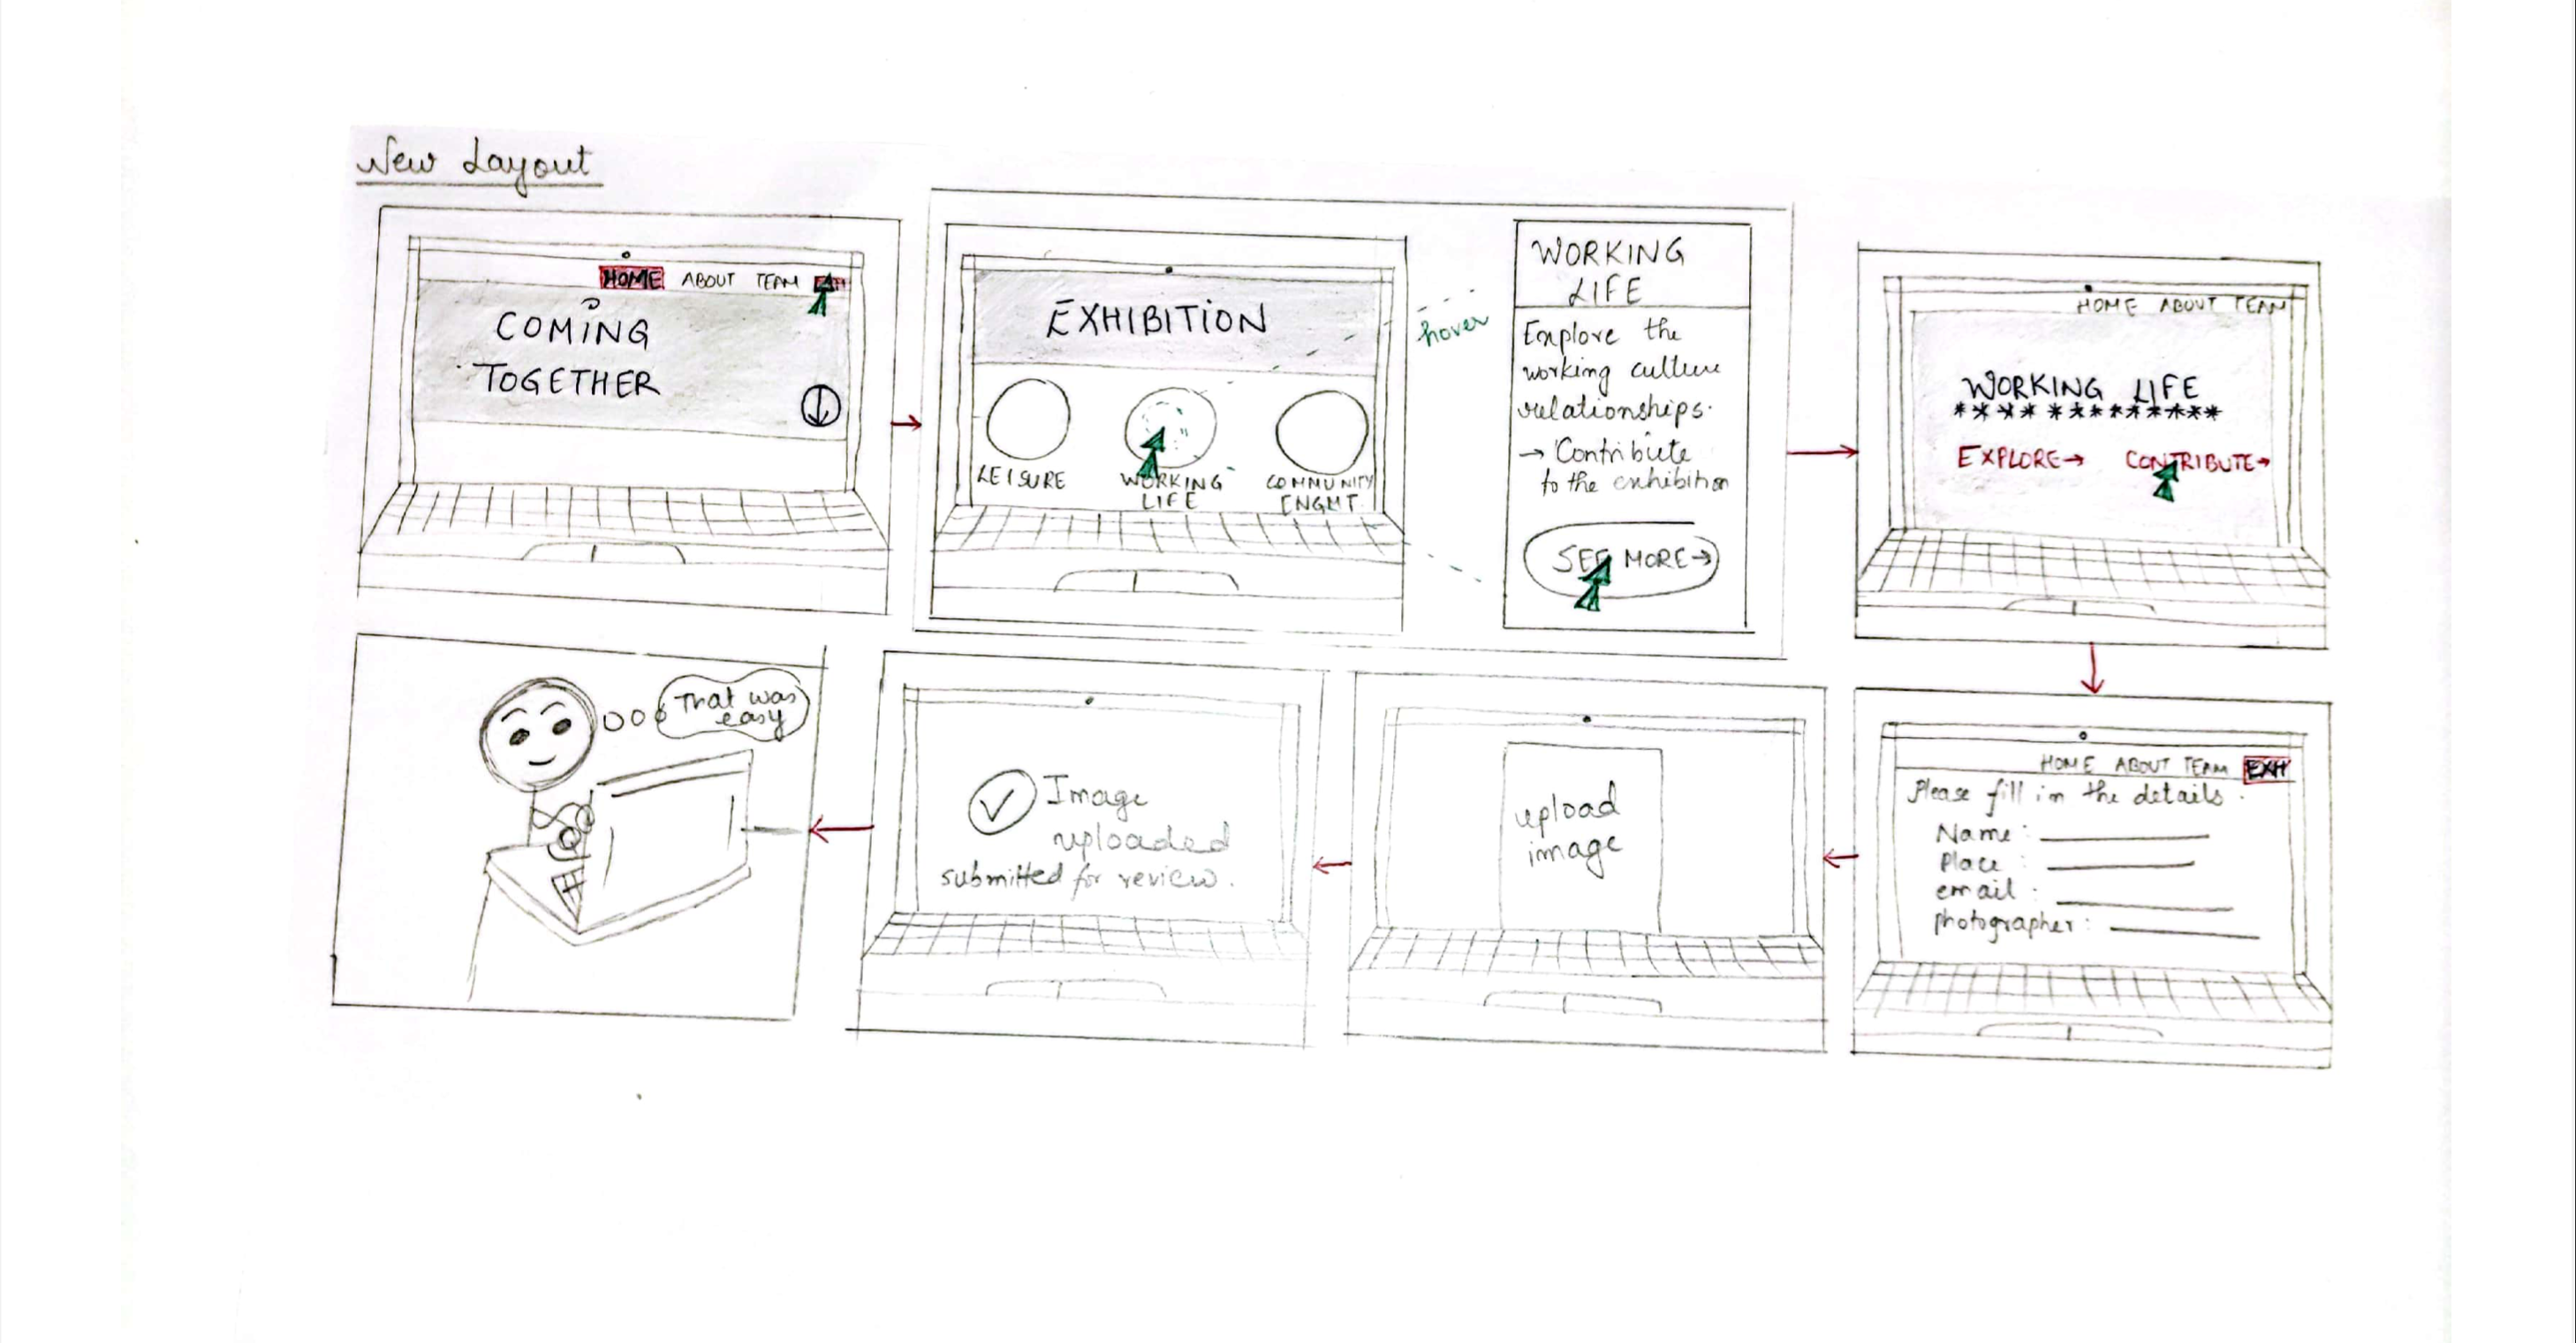 New Layout
HOME ABOUT TEAM
COMING
TOGETHER
EXHIBITION
LEISURE
WORKING
LIFE
COMMUNITY
ENGMT.
hover
WORKING
LIFE
Explore the
working culture
relationships.
→ Contribute
to the exhibition
SEE MORE→
HOME ABOUT TEAM
WORKING LIFE
*************
EXPLORE→ CONTRIBUTE→
HOME ABOUT TEAM EXH
Please fill in the details.
Name:
Place:
email:
photographer:
upload
image
Image
uploaded
submitted for review.
That was
easy